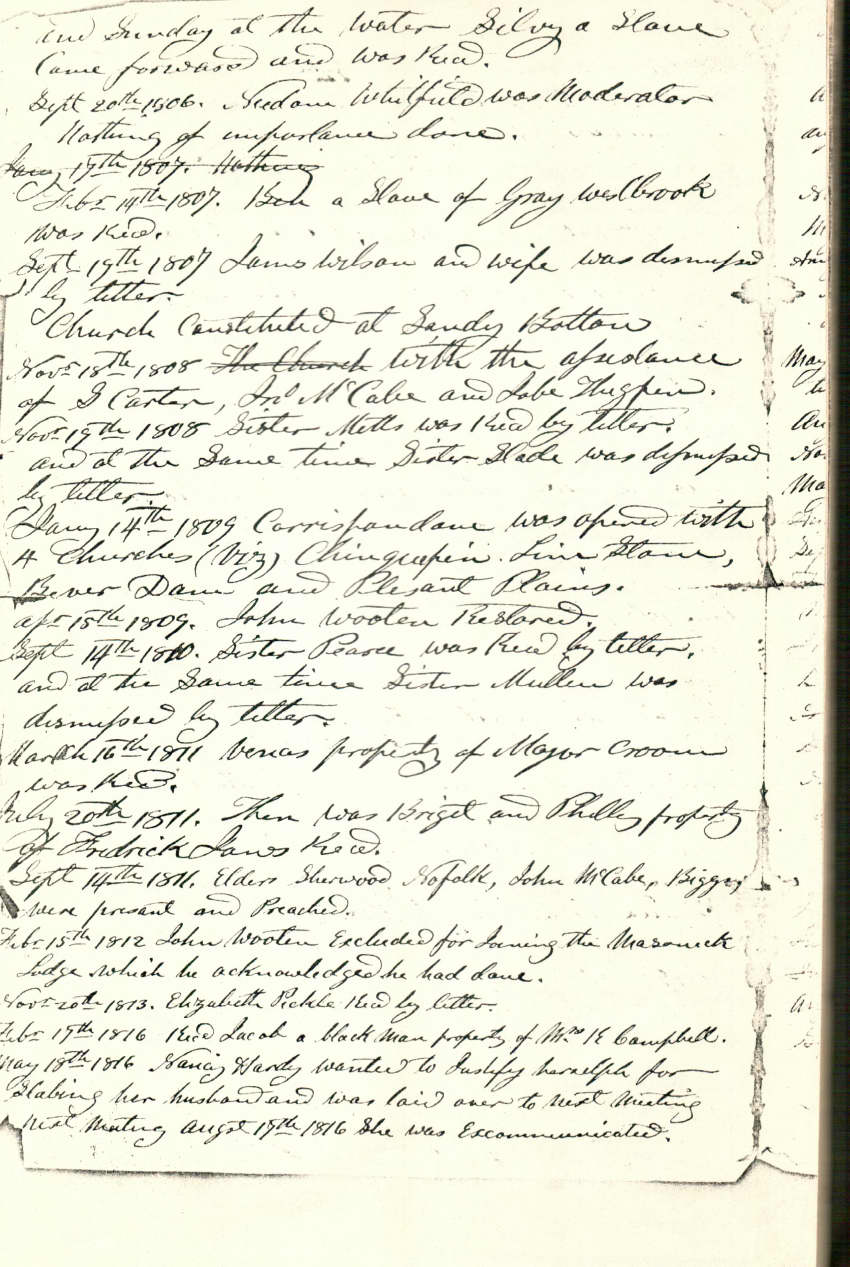 and Sunday at the water Silvy a Slave
Came forward and was Recd.
Sept 20th 1806. Needam Whitfield was Moderator
Nothing of importance done.
Jany 17th 1807. Nothing
Febr 14th 1807. Ben a Slave of Gray Westbrook
was Recd.
Sept 19th 1807 James Wilson and wife was dismissed
by letter.
Church Constituted at Sandy Bottom
Novr 18th 1808 The Church with the assedance
of G Carter, Jno McCabe and Jobe Thigpen.
Novr 19th 1808 Sister Metts was Recd by letter.
and at the Same time Sister Slade was dismissed
by letter.
Jany 14th 1809 Corrispondane was opened with
4 Churches (Viz) Chinquepin. Lim Stone,
Bever Dam and Plesant Plains.
apr 15th 1809. John Wooten Restored.
Sept 14th 1810. Sister Pearce was Recd by letter.
and at the Same time Sister Mullen was
dismissed by letter.
March 16th 1811 Venas property of Major Croom
was Recd.
July 20th 1811. Then was Briget and Philley property
of Fredrick Jones Recd.
Sept 14th 1811. Elders Sherwood Nofolk, John McCabe, Biggs
were presant and Preached.
Febr 15th 1812 John Wooten Excluded for Joining the Masonick
Lodge which he acknowledged he had done.
Novr 20th 1813. Elizabeth Pickle Recd by letter.
Febr 17th 1816 Recd Jacob a black man property of Mrs K Campbell.
May 18th 1816 Nancy Hardy wanted to Justify harselph for
Stabing her husband and was laid over to next Meeting
next Meeting Augst 17th 1816 She was Excommunicated.